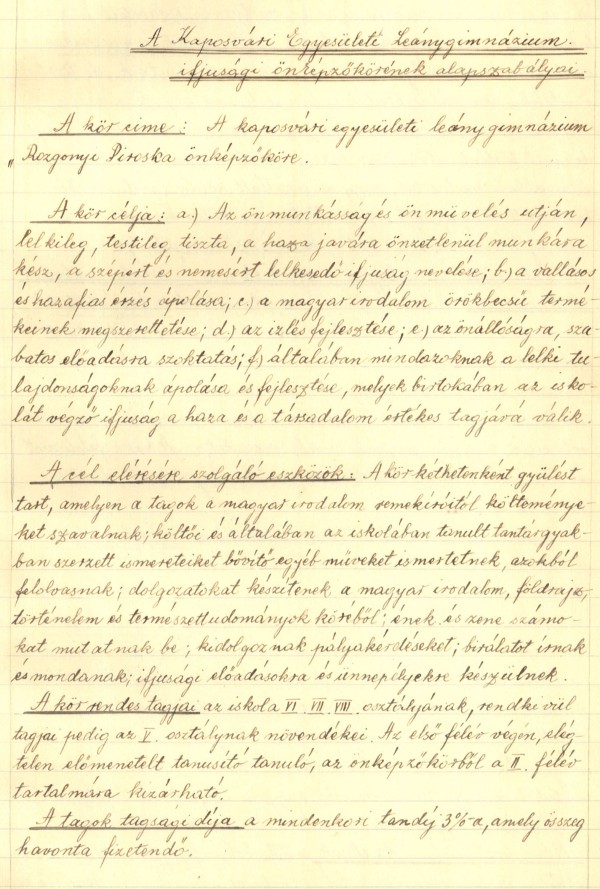 A Kaposvári Egyesületi Leánygimnázium.
ifjusági önképzőkörének alapszabályai.
A kör címe: A kaposvári egyesületi leánygimnázium
„Rozgonyi Piroska önképzőköre.
A kör célja: a.) Az önmunkásság és önmüvelés utján,
lelkileg, testileg tiszta, a haza javára önzetlenül munkára
kész, a szépért és nemesért lelkesedő ifjuság nevelése; b.) a vallásos
és hazafias érzés ápolása; c.) a magyar irodalom örökbecsü termé-
keinek megszerettetése; d.) az izlés fejlesztése; e.) az önállóságra, sza-
batos előadásra szoktatás; f.) általában mindazoknak a lelki tu-
lajdonságoknak ápolása és fejlesztése, melyek birtokában az isko-
lát végző ifjuság a haza és a társadalom értékes tagjává válik.
A cél elérésére szolgáló eszközök: A kör kéthetenként gyülést
tart, amelyen a tagok a magyar irodalom remekíróitól költeménye-
ket szavalnak; költői és általában az iskolában tanult tantárgyak-
ban szerzett ismereteiket bővítő egyéb műveket ismertetnek, azokból
felolvasnak; dolgozatokat készítenek a magyar irodalom, földrajz,
történelem és természettudományok köréből; ének és zene számo-
kat mutatnak be; kidolgoznak pályakérdéseket; birálatot írnak
és mondanak; ifjusági előadásokra és ünnepélyekre készülnek.
A kör rendes tagjai az iskola VI. VII. VIII. osztályának, rendkivül
tagjai pedig az V. osztálynak növendékei. Az első félév végén, elég-
telen előmenetelt tanusító tanuló, az önképzőkörből a II. félév
tartalmára kizárható.
A tagok tagsági díja a mindenkori tandíj 3%-a, amely összeg
havonta fizetendő.